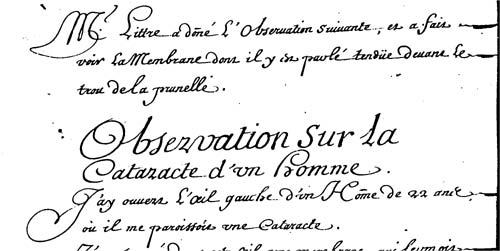 Mr. Littre a doñé L'Observation suivante, et a fait
voir la Membrane dont il y est parlé tendüe devant le
trou de la prunelle.
Observation sur la
Cataracte d'vn homme.
J'ay ouvert L'œil gauche d'vn Hom̃e de 22 ans
où il me paroissoit vne Cataracte.